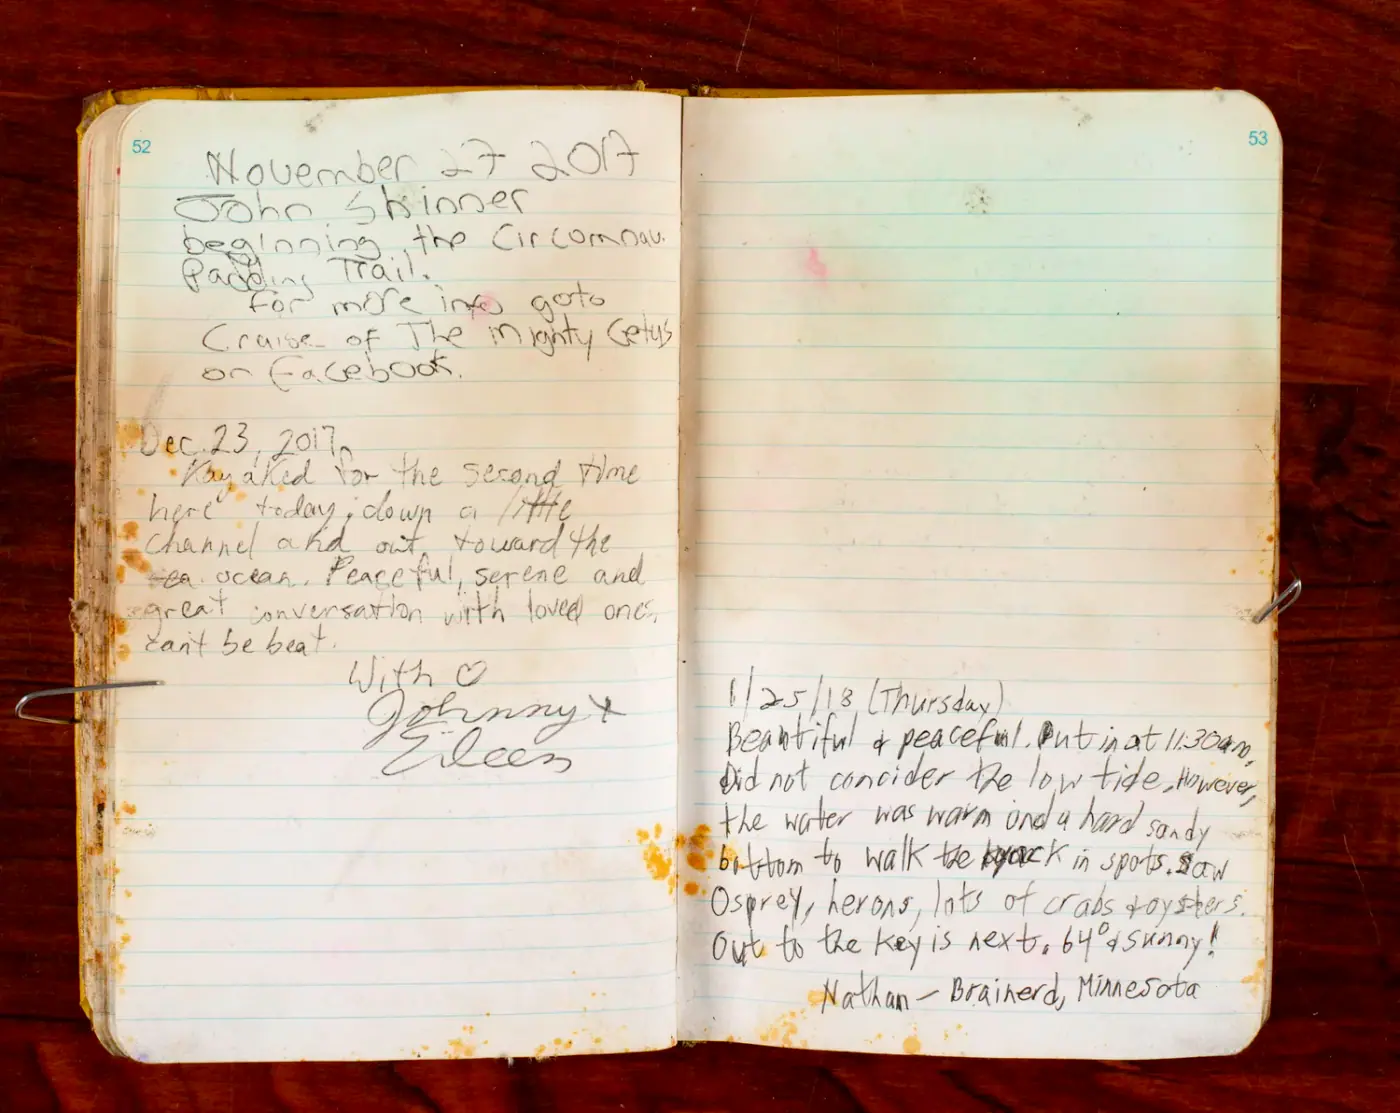 52
November 27 2017
John Skinner
beginning the Circomnav.
Padding Trail.
For more info goto
Cruise of The Mighty Cetus
on Facebook.
Dec. 23, 2017
Kayaked for the second time
here today, down a little
channel and out toward the
ocean. Peaceful, serene and
great conversation with loved ones,
can't be beat.
With ♡
Johnny +
Eileen
53
1/25/18 (Thursday)
Beautiful & peaceful. Put in at 11:30am,
Did not concider the low tide. However,
the water was warm and a hard sandy
bottom to walk the in spots. Saw
Osprey, herons, lots of crabs & oysters.
Out to the key is next. 64° & sunny!
Nathan – Brainerd, Minnesota